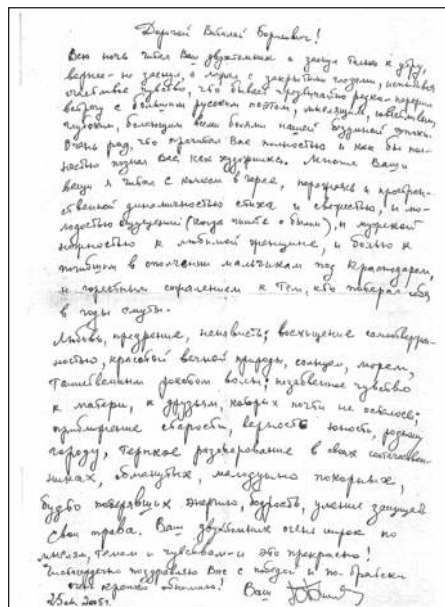 Дорогой Виталий Борисович!
Всю ночь читал Ваш двухтомник и заснул только к утру,
вернее - не заснул, а лежал с закрытыми глазами, испытывая
счастливое чувство, что бывает чрезвычайно редко - пережил
встречу с большим русским поэтом, мыслящим,
глубоким, болеющим всеми болями нашей безумной эпохи.
Очень рад, что прочитал Вас полностью и как бы пол-
ностью познал Вас как художника. Многие Ваши
вещи я читал с комком в горле, поражаясь и простран-
ственной динамичностью стиха и свежестью, и мо-
лодостью ощущений (когда пишете о былом), и мужской
нежностью к любимой женщине, и болью к
погибшим в ополчении мальчикам под Краснодаром,
и горестным сожалением к тем, кто потерял себя
в годы смуты.
Любовь, презрение, ненависть; восхищение самоотвержен-
ностью, красотой вечной природы, солнцем, морем,
таинственным рокотом волны; чувство
к матери, к друзьям, которых почти не осталось;
старости, верность юности, родному
городу, терпкое разочарование в своих соотечествен-
никах, обманутых, малодушно покорных,
будто потерявших энергию, бодрость, умение защищать
свои права. Ваш двухтомник очень широк по
мыслям, темам и чувствам - и это прекрасно!
поздравляю Вас с победой и по-братски
очень крепко обнимаю! Ваш
25 2005г.